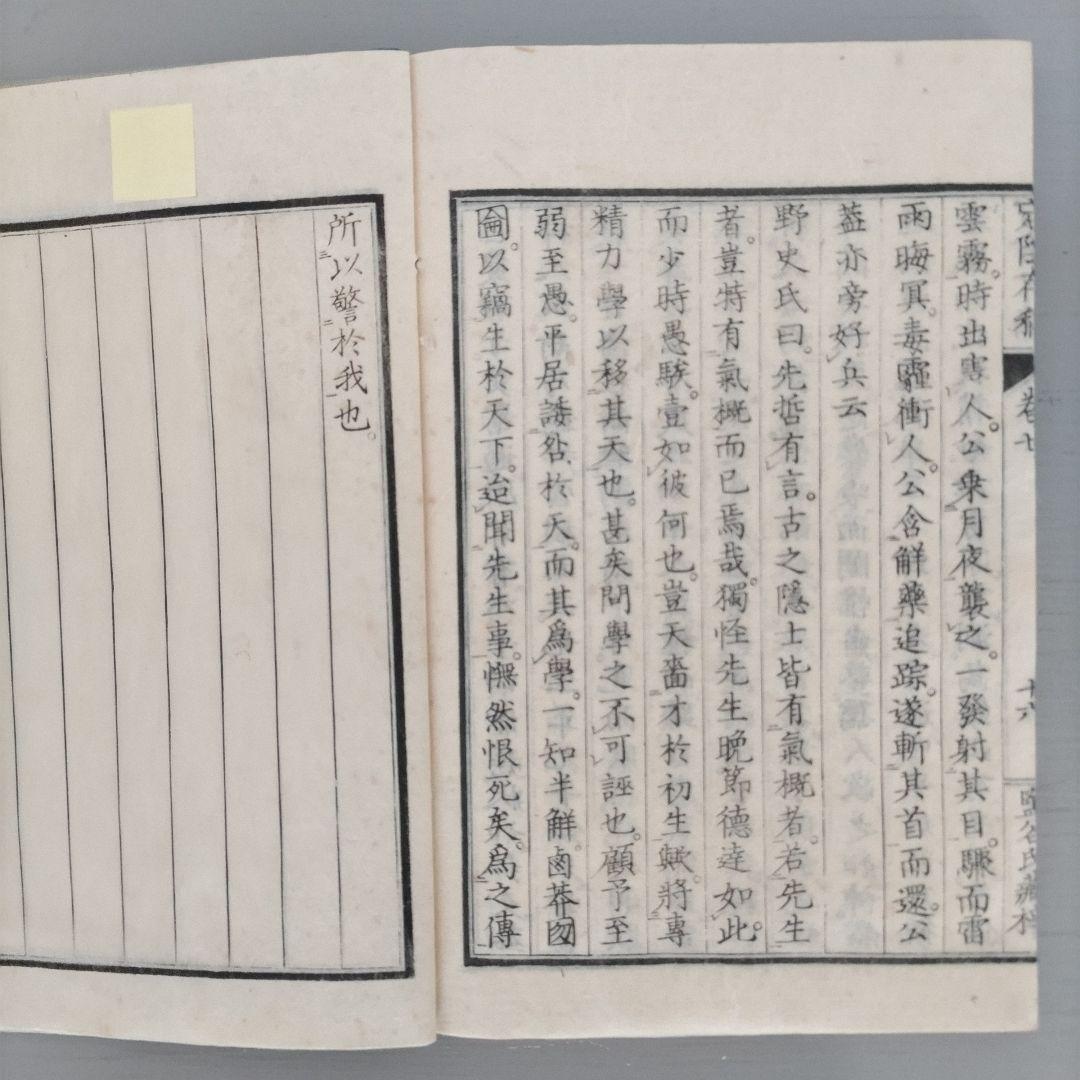 宕陰存稿 卷七 十六 鹽谷氏藏梓
雲霧。時出害人。公乘月夜襲之。一發射其目。驟而雷
雨晦冥。毒霾衝人。公含解藥追踪。遂斬其首而還。公
葢亦旁好兵云
野史氏曰。先哲有言。古之隱士皆有氣概者。若先生
者。豈特有氣概而已焉哉。獨怪先生晚節德達如此。
而少時愚騃。壹如彼何也。豈天嗇才於初生歟。將專
精力學以移其天也。甚矣問學之不可誣也。顧予至
弱至愚。平居諉咎於天。而其爲學。一知半解鹵莽囫
圇。以竊生於天下。迨聞先生事。憮然恨死矣。爲之傳
所以警於我也。